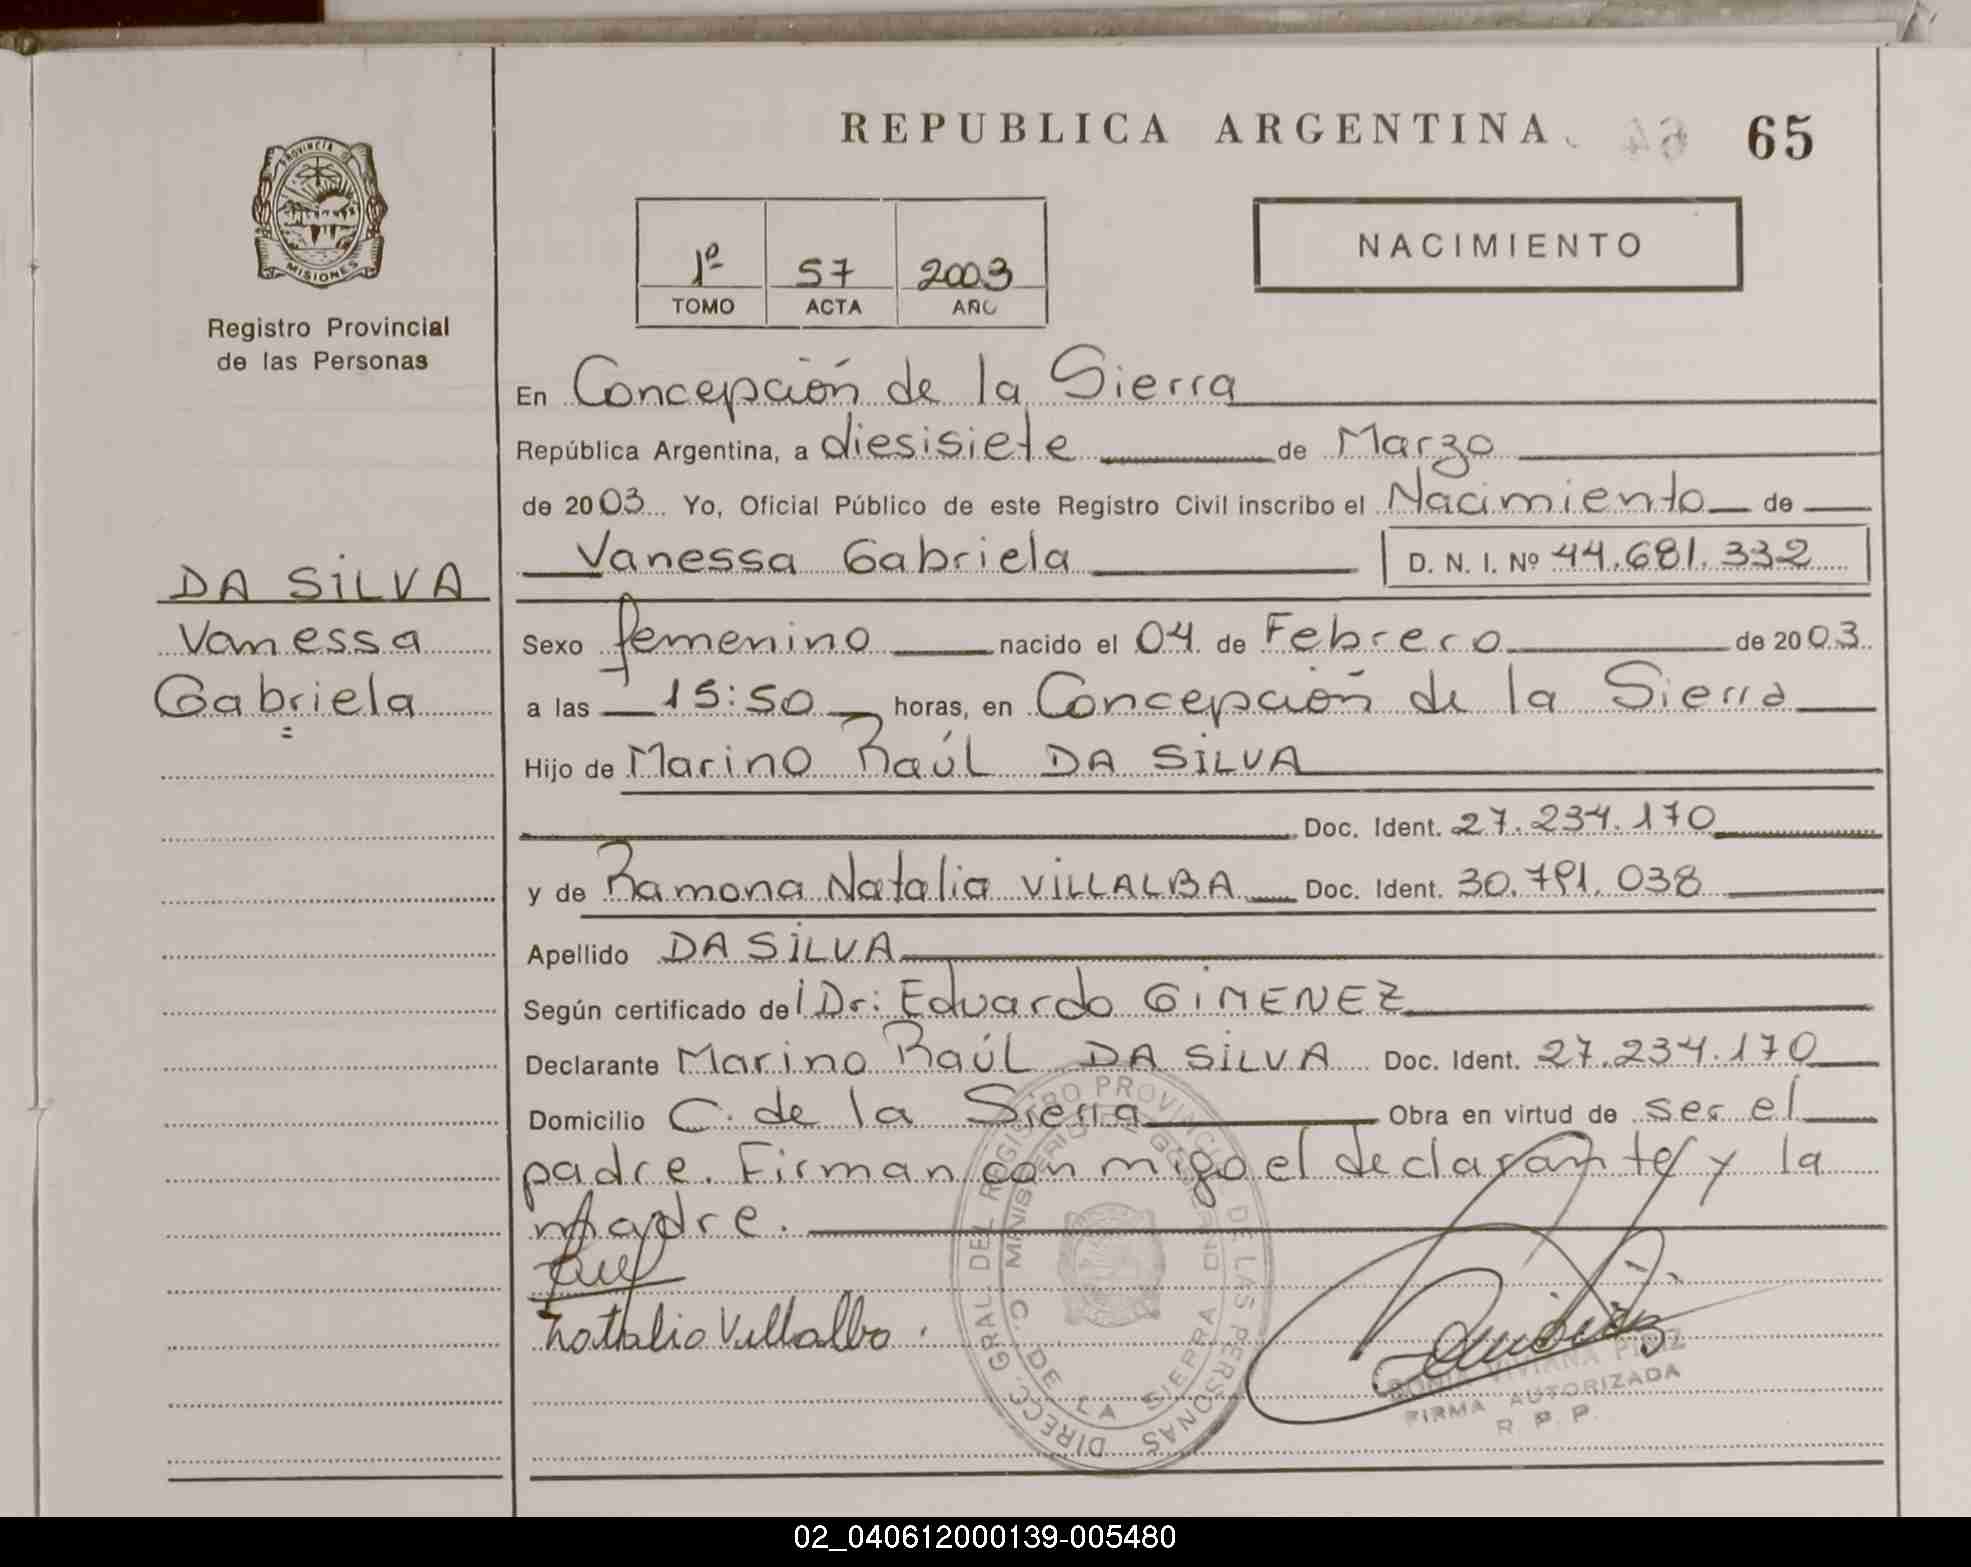 REPUBLICA ARGENTINA 64 65
PROVINCIA DE
MISIONES
Registro Provincial
de las Personas
1º 57 2003
TOMO ACTA AÑO
NACIMIENTO
En Concepción de la Sierra
República Argentina, a diesisiete de Marzo
de 2003 Yo, Oficial Público de este Registro Civil inscribo el Nacimiento de
Vanessa Gabriela D. N. I. Nº 44.681.332
DA SILVA
Vanessa
Gabriela
Sexo femenino nacido el 04 de Febrero de 2003
a las 15:50 horas, en Concepción de la Sierra
Hijo de Marino Raúl DA SILVA
Doc. Ident. 27.234.170
y de Ramona Natalia VILLALBA Doc. Ident. 30.791.038
Apellido DA SILVA
Según certificado del Dr: Eduardo GIMENEZ
Declarante Marino Raúl DA SILVA Doc. Ident. 27.234.170
Domicilio C. de la Sierra Obra en virtud de ser el
padre. Firman conmigo el declarante y la
madre.
Natalia Villalba
DIRECC. GRAL DEL REGISTRO PROVINCIAL DE LAS PERSONAS
MINISTERIO DE GOBIERNO
C. DE LA SIERRA
SONIA VIVIANA
FIRMA AUTORIZADA
R. P. P.
02_040612000139-005480